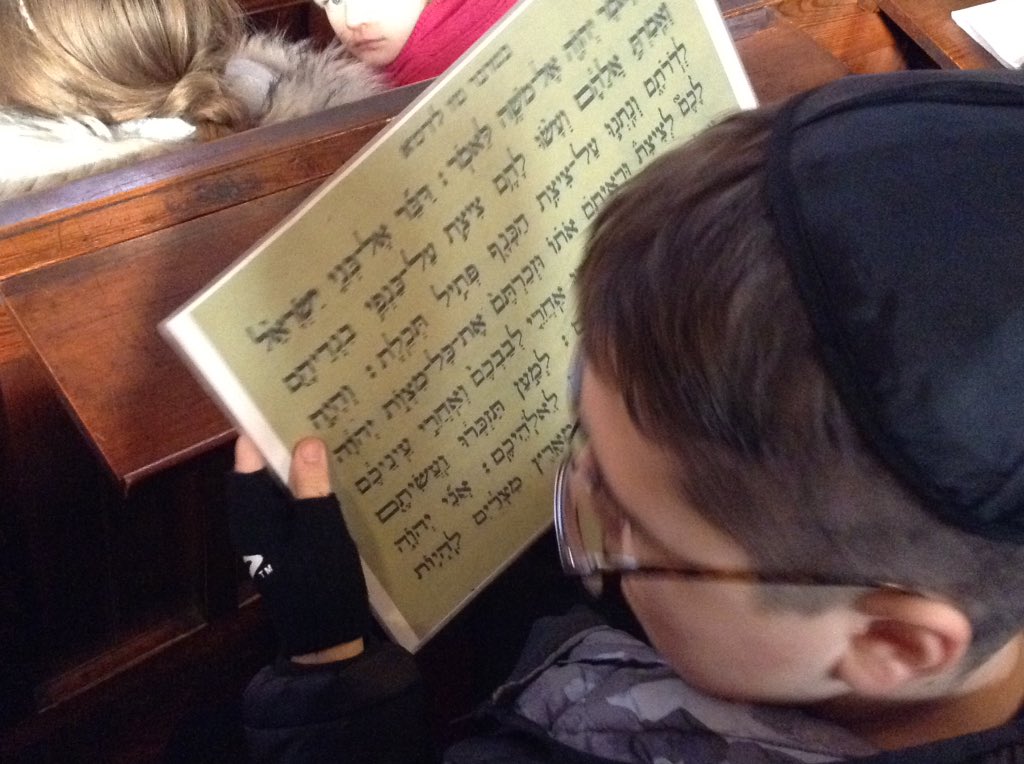 יְהֹוָה אֶל־מֹשֶׁה לֵּאמֹר : דַּבֵּר אֶל־בְּנֵי יִשְׂרָאֵל
וְאָמַרְתָּ אֲלֵהֶם וְעָשׂוּ לָהֶם צִיצִת עַל־כַּנְפֵי בִגְדֵיהֶם
לְדֹרֹתָם וְנָתְנוּ עַל־צִיצִת הַכָּנָף פְּתִיל תְּכֵלֶת : וְהָיָה
לָכֶם לְצִיצִת וּרְאִיתֶם אֹתוֹ וּזְכַרְתֶּם אֶת־כָּל־מִצְוֹת יְהֹוָה
אַחֲרֵי לְבַבְכֶם וְאַחֲרֵי עֵינֵיכֶם
: לְמַעַן תִּזְכְּרוּ וַעֲשִׂיתֶם
לֵאלֹהֵיכֶם : אֲנִי יְהֹוָה
מִצְרַיִם לִהְיוֹת
TM